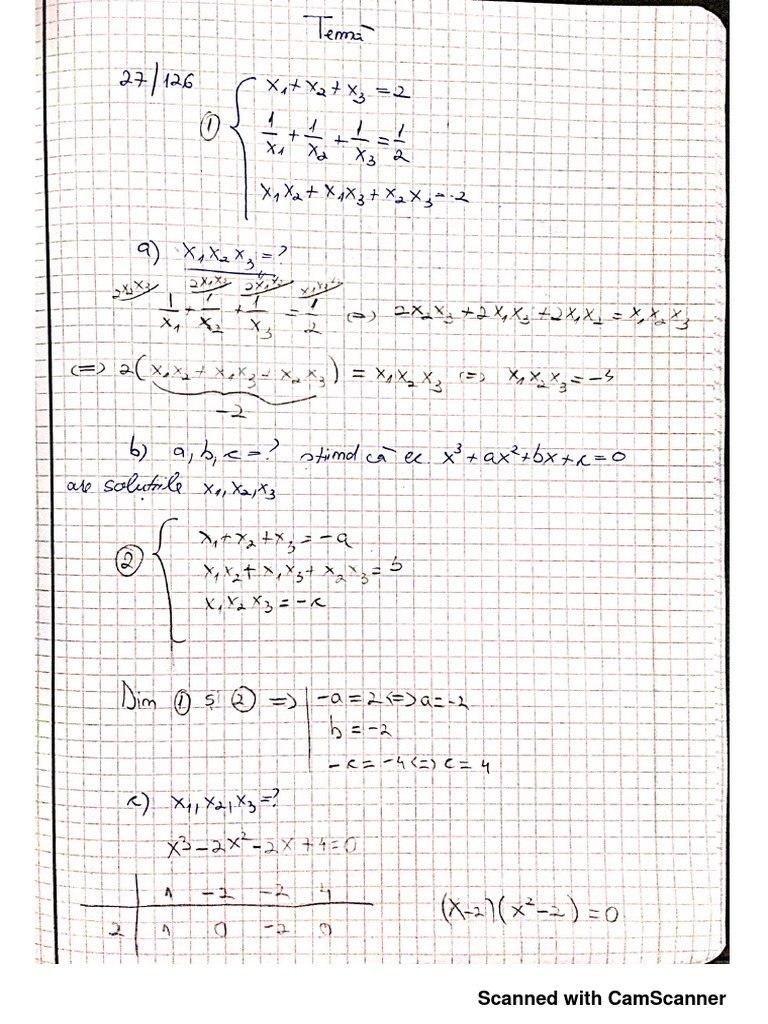 Temă
27/126
① { x₁+x₂+x₃=2
1/x₁ + 1/x₂ + 1/x₃ = 1/2
x₁x₂+x₁x₃+x₂x₃=-2
a) x₁x₂x₃=?
2x₂x₃ 2x₁x₃ 2x₁x₂ x₁x₂x₃
1/x₁ + 1/x₂ + 1/x₃ = 1/2 (=) 2x₂x₃+2x₁x₃+2x₁x₂=x₁x₂x₃
(=) 2(x₁x₂+x₁x₃+x₂x₃) = x₁x₂x₃ (=) x₁x₂x₃=-4
-2
b) a,b,c=? știind că ec. x³+ax²+bx+c=0
are soluțiile x₁,x₂,x₃
② { x₁+x₂+x₃=-a
x₁x₂+x₁x₃+x₂x₃=b
x₁x₂x₃=-c
Din ① și ② => | -a=2(=)a=-2
b=-2
-c=-4(=)c=4
c) x₁,x₂,x₃=?
x³-2x²-2x+4=0
1 -2 -2 4
2 1 0 -2 0
(x-2)(x²-2)=0
Scanned with CamScanner